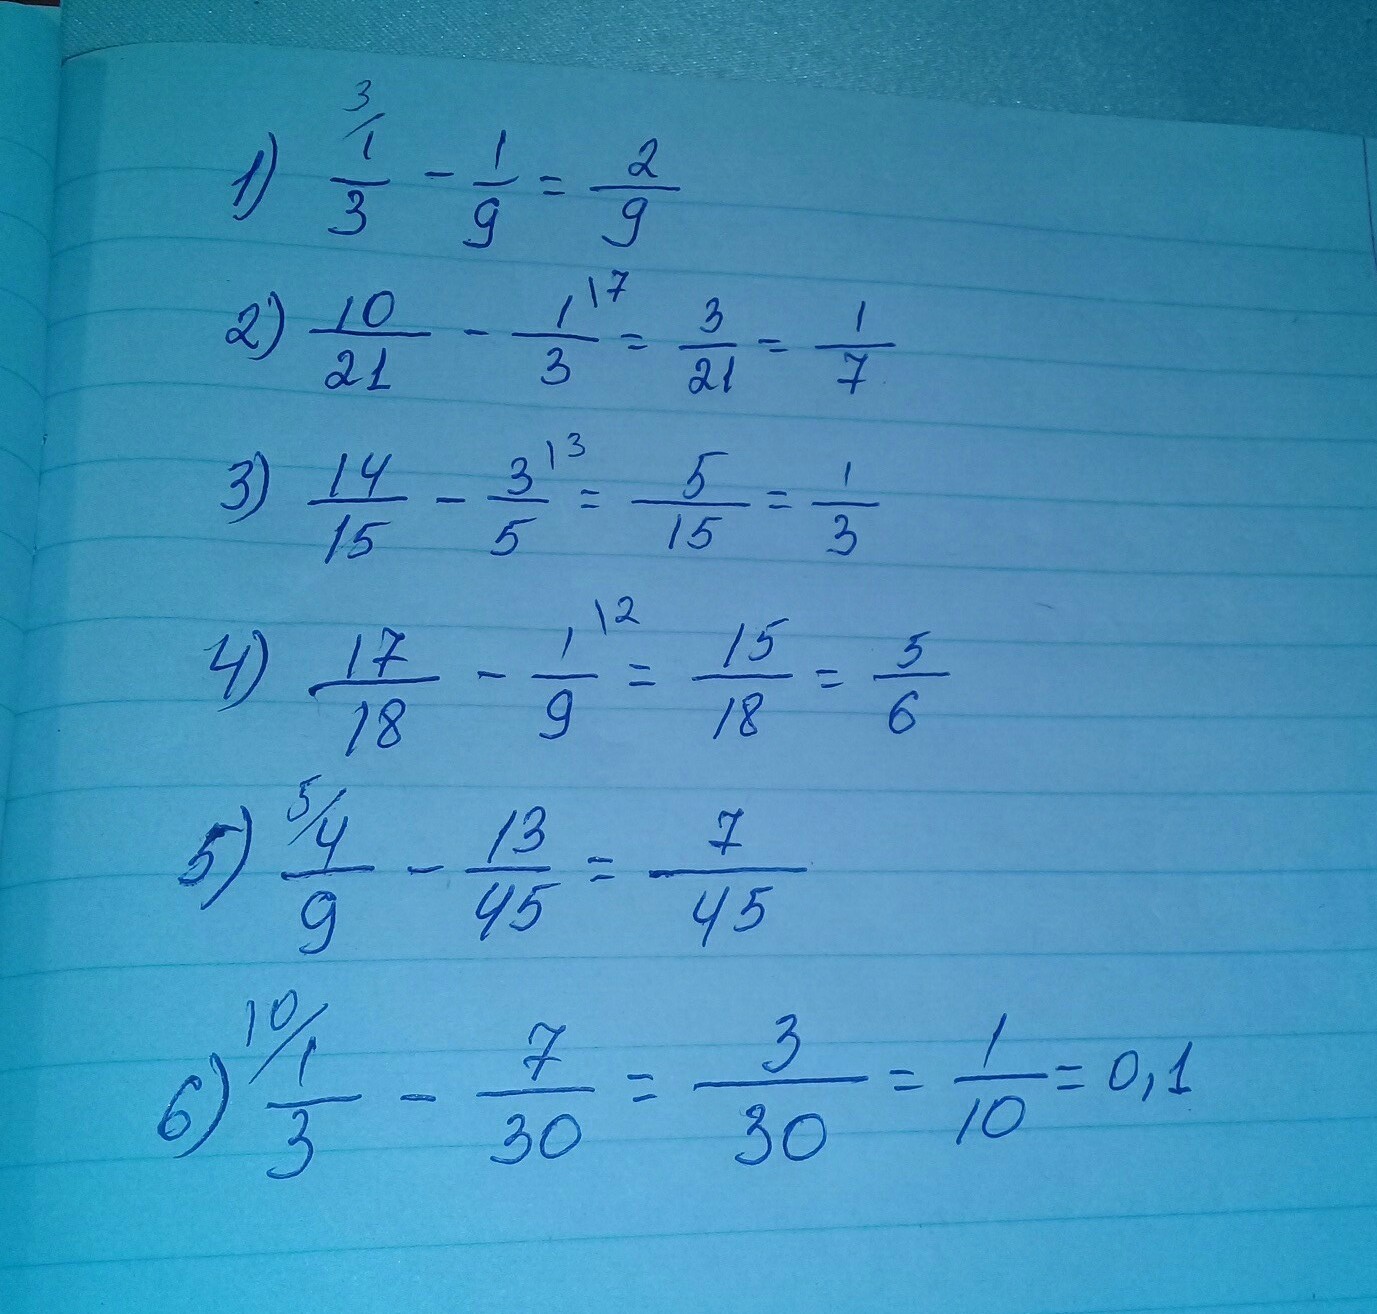 1) 3/ 1/3 - 1/9 = 2/9
2) 10/21 - 1/3 \7 = 3/21 = 1/7
3) 14/15 - 3/5 \3 = 5/15 = 1/3
4) 17/18 - 1/9 \2 = 15/18 = 5/6
5) 5/ 4/9 - 13/45 = 7/45
6) 10/ 1/3 - 7/30 = 3/30 = 1/10 = 0,1